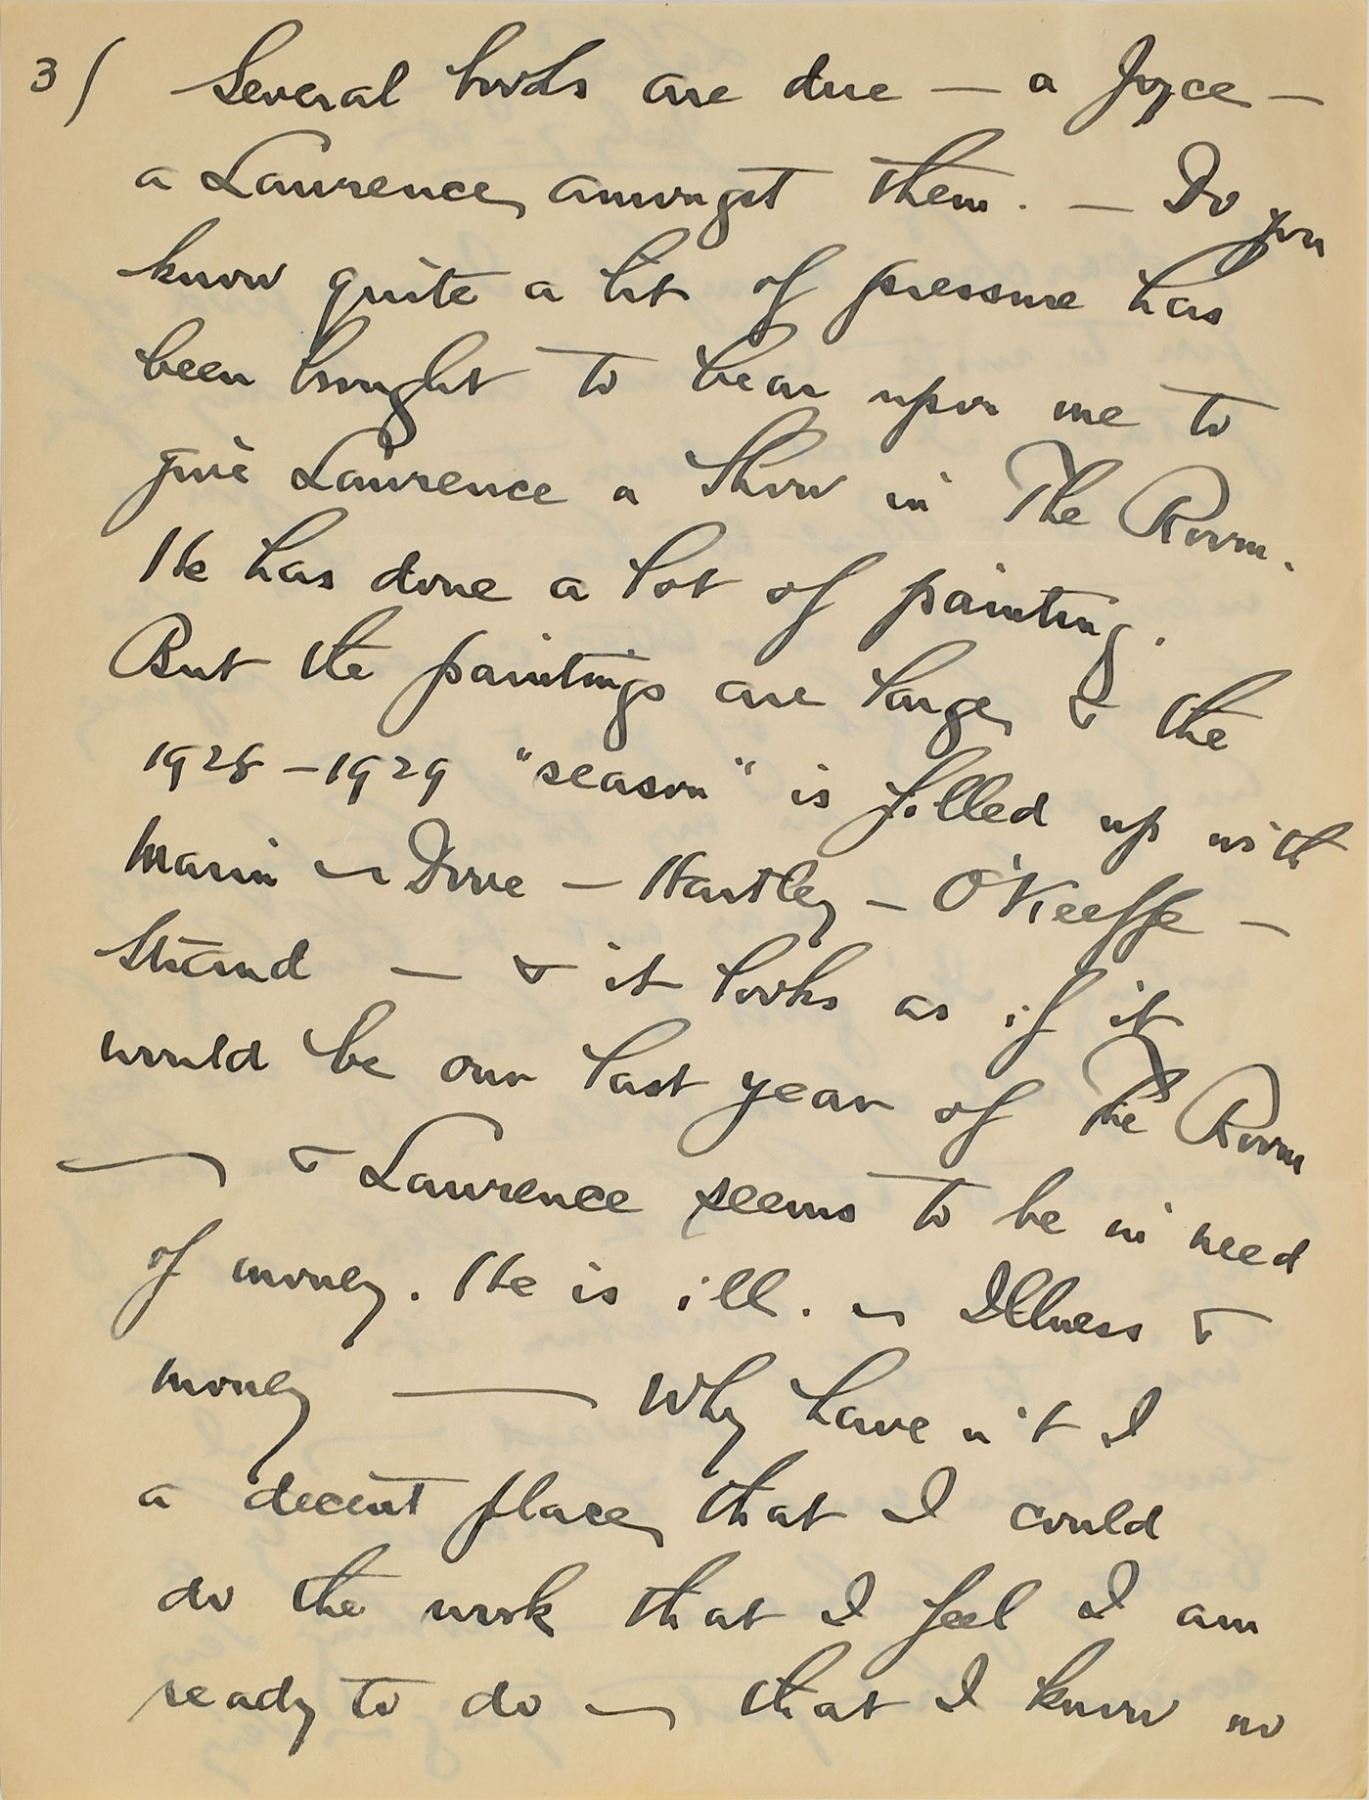 3/ Several books are due — a Joyce —
a Lawrence, amongst them. — Do you
know quite a bit of pressure has
been brought to bear upon me to
give Lawrence a Show in The Room.
He has done a lot of painting.
But the paintings are large, & the
1928–1929 "season" is filled up with
Marin — Dove — Hartley — O'Keeffe —
Strand — & it looks as if it
would be our last year of The Room
— & Lawrence seems to be in need
of money. He is ill. — Illness &
money — Why have n't I
a decent place, that I could
do the work that I feel I am
ready to do — that I know no